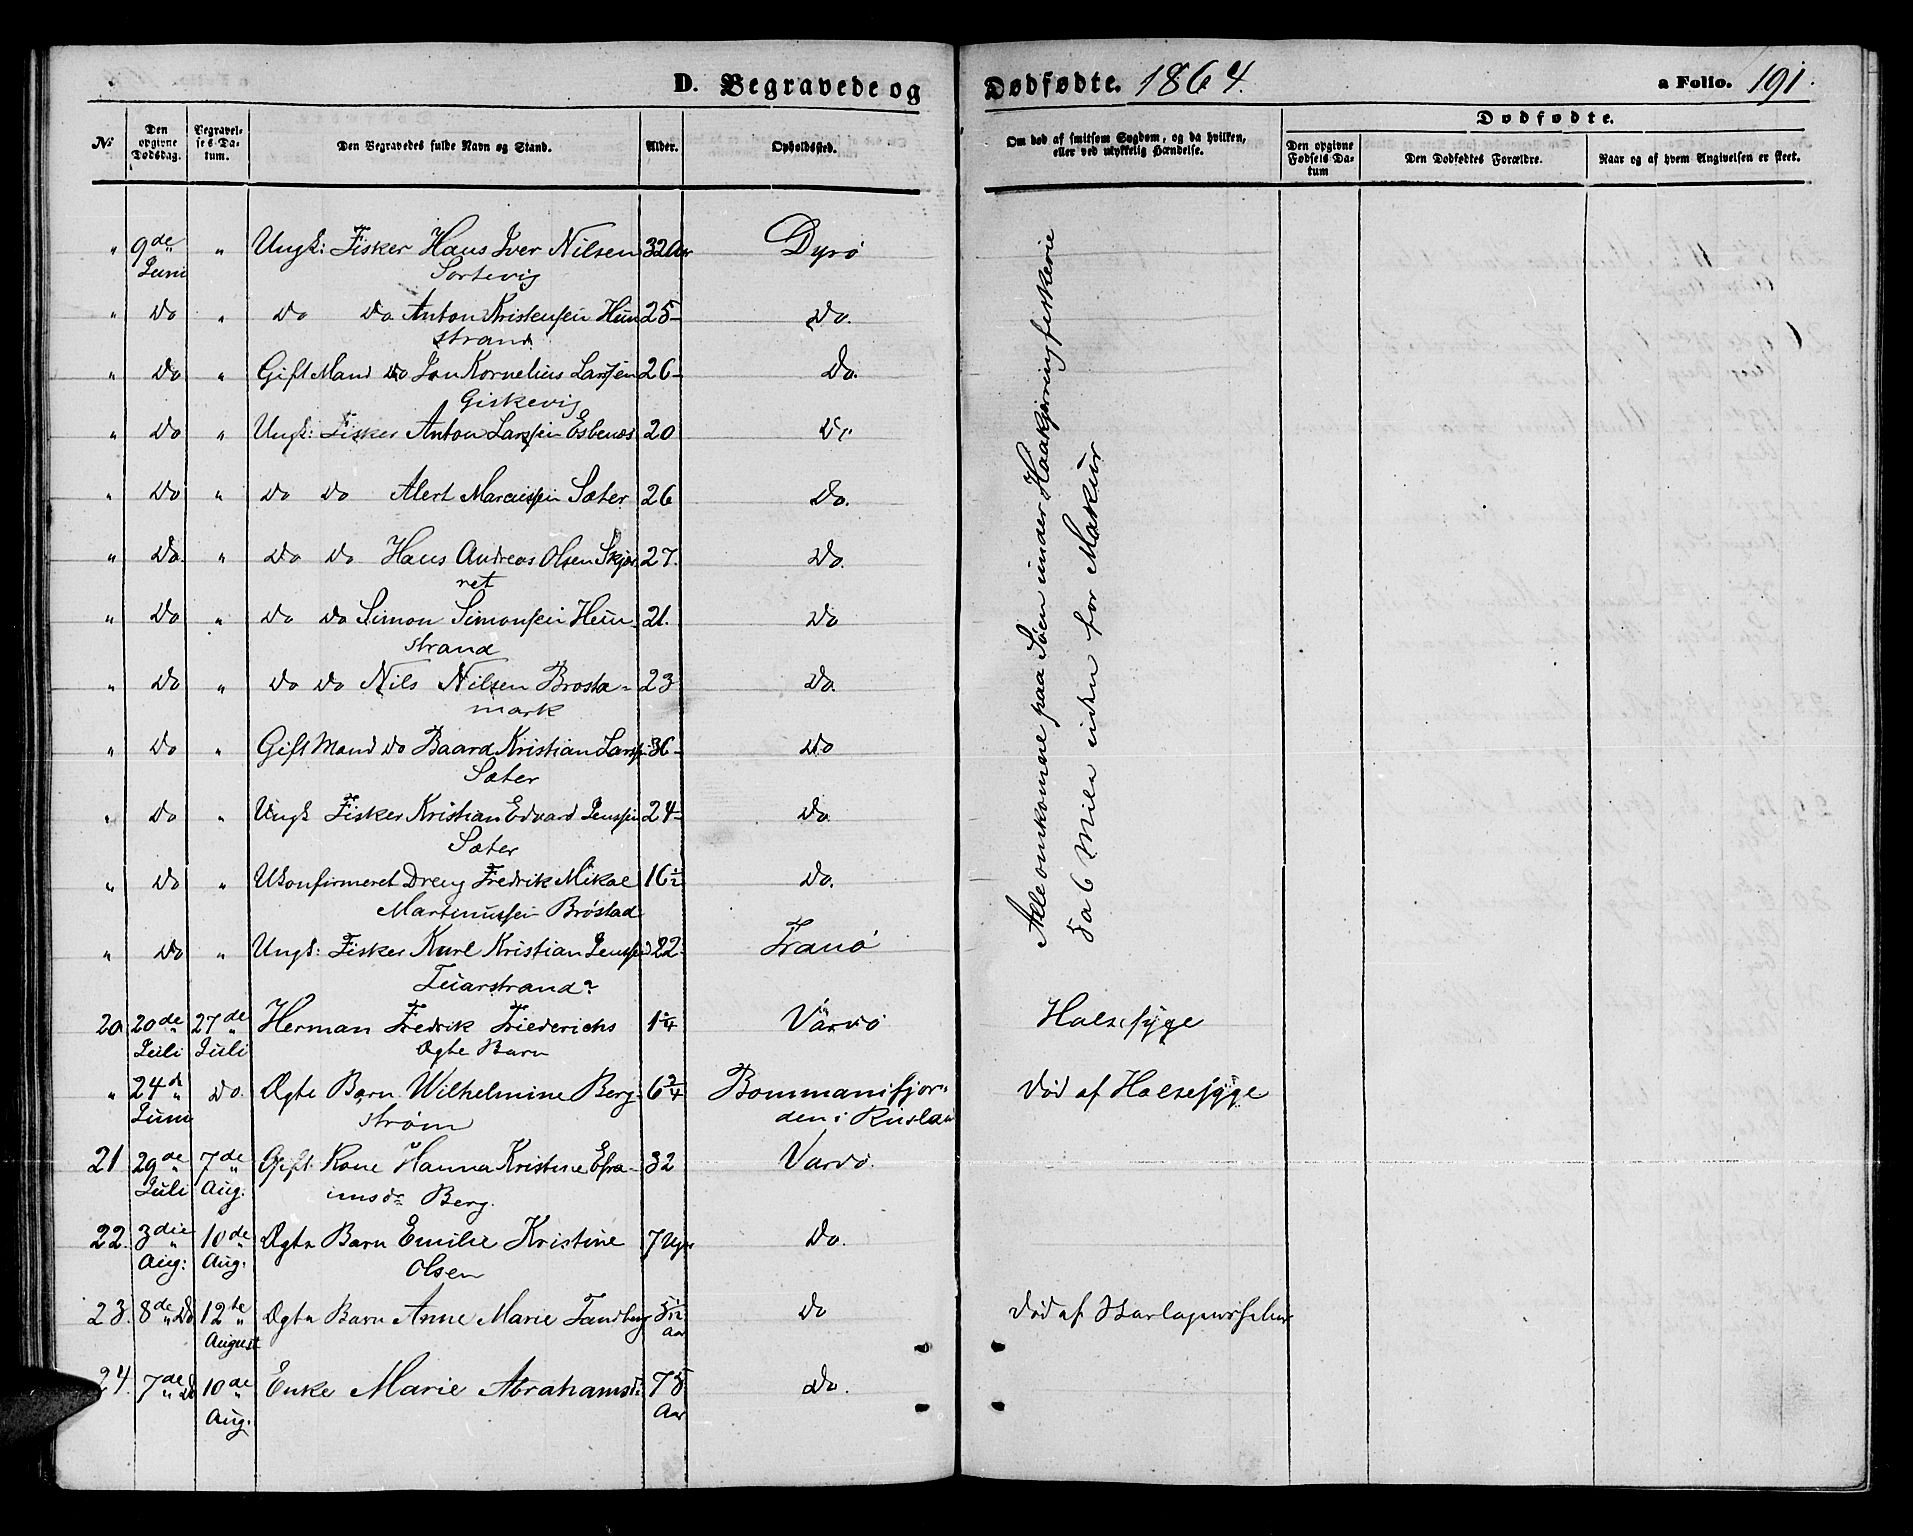 D. Begravede og Dødfødte. 1864. a Folio. 191.
No
Den opgivne Dødsdag.
Begravelses-Datum.
Den Begravedes fulde Navn og Stand.
Alder.
Opholdssted.
Om død af smitsom Sygdom, og da hvilken, eller ved ulykkelig Hændelse.
Dødfødte.
Den opgivne Fødsels Datum
Den Dødfødtes Forældre.
Naar og af hvem Angivelsen er skeet.
" 9de " Ungk: Fisker Hans Iver Nilsen 32 Aar Dyrø
Juni Sortevig
" Do " Do Do Anton Kristensen Hun 25 - Do.
strand
" Do " Gift Mand Do Jon Kornelius Larssen 26 - Do.
Giskevig
" Do " Ungk: Fisker Anton Larssen Esbenæs 20 Do
" Do " Do Do Alert Sæter 26 Do.
" Do " Do Do Hans Andreas Olsen Skjær 27. Do.
ret
" Do " Do Do Simon Simonsen Hun- 21. Do
strand
" Do " Do Do Nils Nilsen Brosta- 23 Do.
mark
" Do " Gift Mand Do Baard Kristian Larss 36 - Do
Sæter
" Do " Ungk Fisker Kristian Edvard Jenssen 24 - Do.
Sæter
" Do " Ukonfirmeret Dreng Fredrik Mikal 16 1/2 Do.
Martinussen Brøstad
" Do " Ungk: Fisker Karl Kristian Jenssen 22 - Tranø
Alle omkomne paa Søen under Haakjerringfiskerie
5 a 6 Mile uden for Makur
20 20de 27de Herman Fredrik Friederichs 1 1/4 Vardø Halsesyge
Juli Juli Ægte Barn
" 24de Do. Ægte Barn Wilhelmine Berg- 6 3/4 Bommansfjor- Død af Halsesyge
Juni strøm den i Rusland
21 29de 7de Gift Kone Hanna Kristine Efra- 32 Vardø.
Juli Aug. imsdr Berg.
22. 3die 10de Ægte Barn Emilie Kristine 7 Uger Do.
Aug: Aug. Olsen
23. 8de Do 12te Ægte Barn Anne Marie Tandberg 5 1/12 Do Død af Skarlagensfeber
August Aar
24. 7de Do 10de Enke Marie Abrahamsdr 75 Do.
Aug. Aar